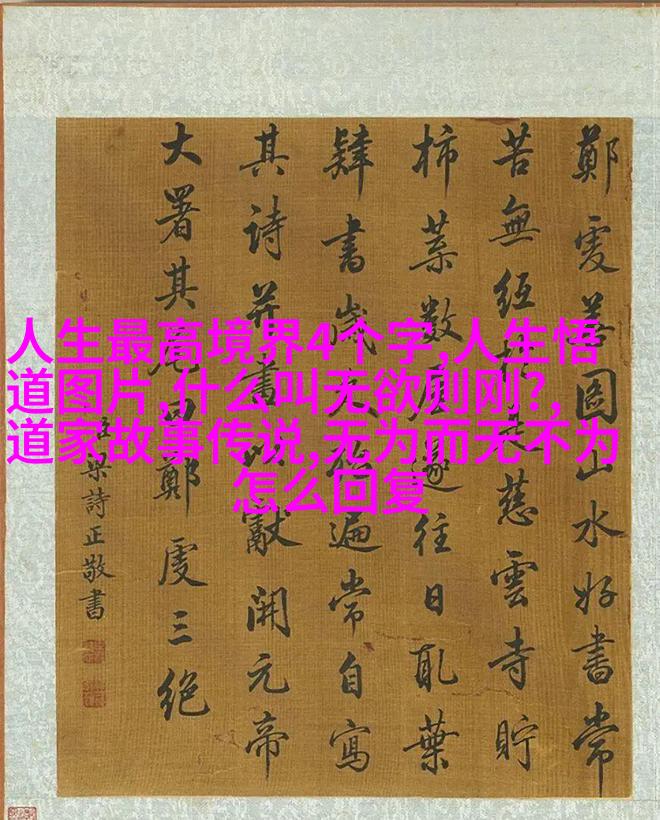 人生最高境界4个字,人生悟
道图片,什么叫无欲则刚?,
道家故事传说,无为而无不为
怎么回复
鄭虔善圖山水好書常
苦無紙於是慈雲寺貯
柿葉數屋遂往日取葉
肄書歲久殆遍常自寫
其詩並書以獻開元帝
大署其尾曰鄭虔三絕
臣梁詩正敬書